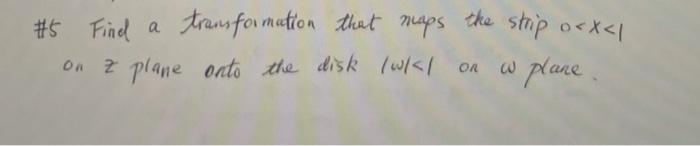 #5 Find a transformation that maps the strip 0<x<1
on z plane onto the disk |w|<1 on w plane.